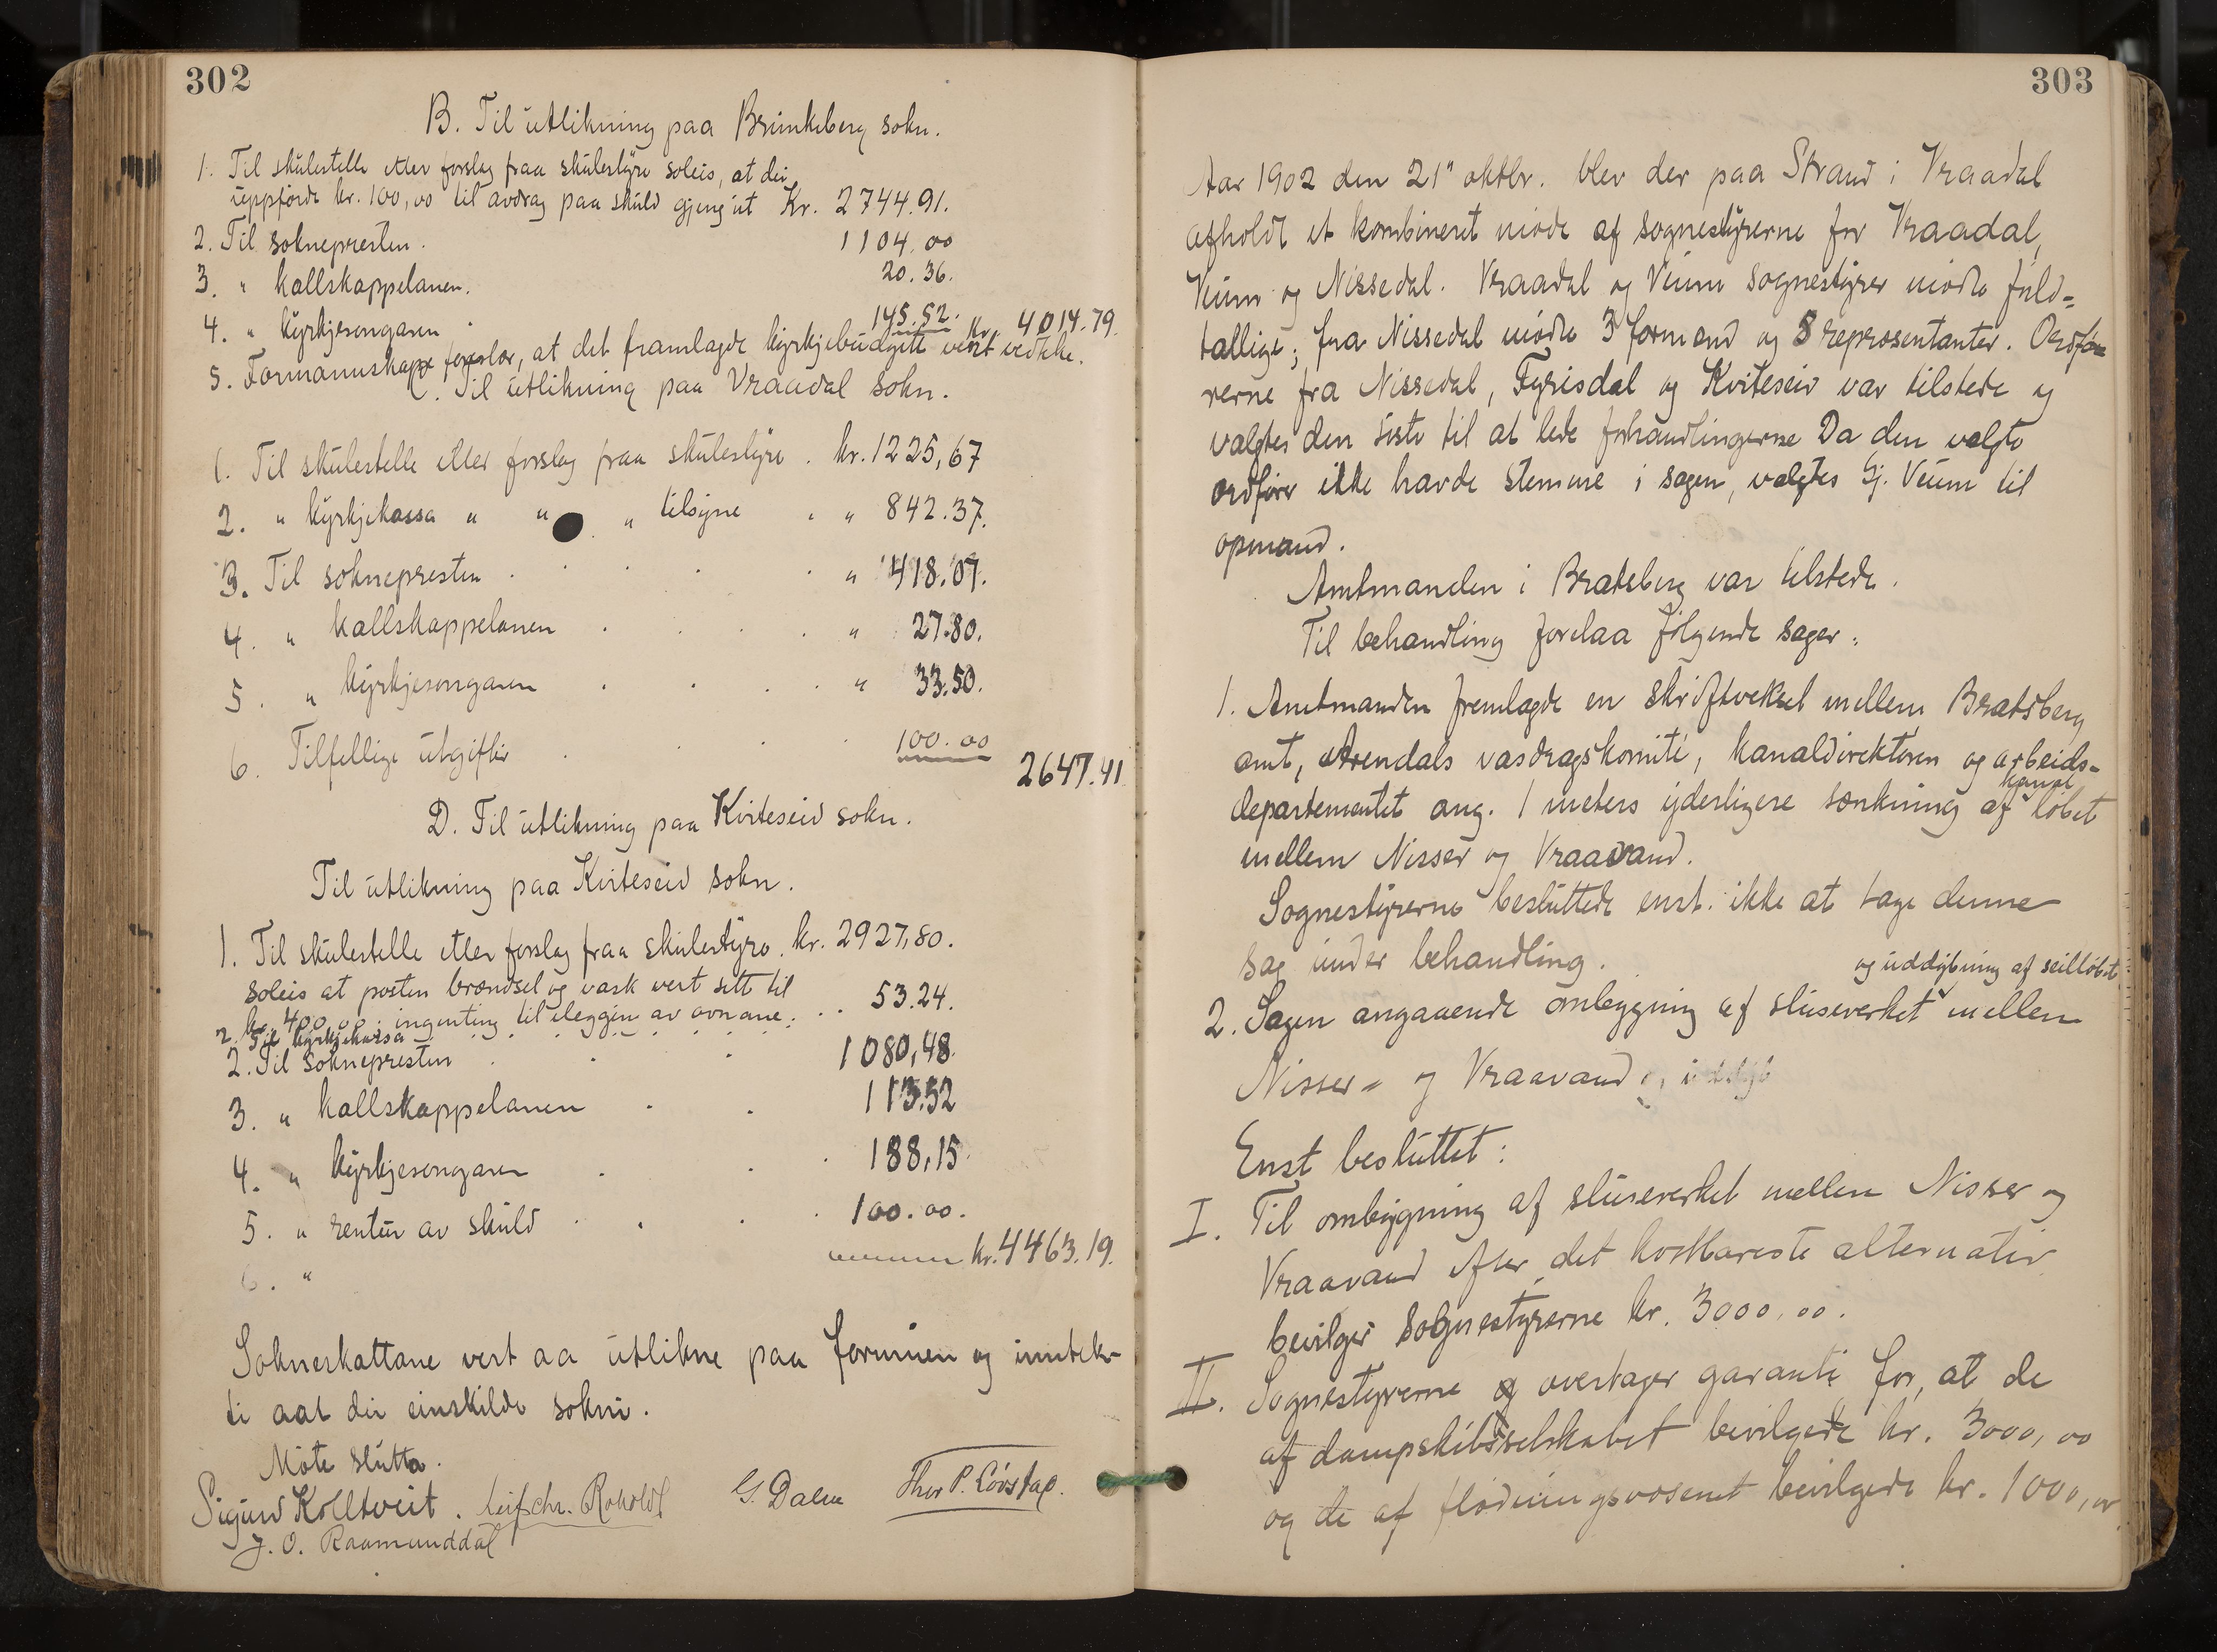 302
B. Til utlikning paa Brunkeberg sokn.
1. Til skulestelle etter forslag fraa skulestyre soleis, at dei
uppførde kr. 100,00 til avdrag paa skuld gjeng ut Kr. 2744.91.
2. Til soknepresten. 1104.00
3. " kallskappelanen. 20.36.
4. " kyrkjesongaren 145.52. Kr. 4014.79.
5. Formannskape foreslær, at det framlagde kyrkjebudgett vert vedteke.
C. Til utlikning paa Vraadal sokn.
1. Til skulestelle etter forslag fraa skulestyre. kr. 1225,67
2. " kyrkjekassa " " " tilsyne . " 842.37.
3. Til soknepresten . . . . . " 418.07.
4. " kallskappelanen . . . . " 27.80.
5. " kyrkjesongaren . . . . " 33.50.
6. Tilfellige utgifter . . . . 100.00
2647.41
D. Til utlikning paa Kviteseid sokn.
Til utlikning paa Kviteseid sokn.
1. Til skulestelle etter forslag fraa skulestyre. kr. 2927,80.
soleis at posten brændsel og vask vert sett til
kr. 400,00; ingenting til ileggin av ovnane. . . 53.24.
2. Til kyrkjekassa
2. Til soknepresten . . . 1080,48.
3. " kallskappelanen . . 113.52
4. " kyrkjesongaren . . . 188,15.
5. " rentur av skuld . . . . 100.00.
kr. 4463.19.
6. "
Sokneskattane vert aa utlikne paa formuen og inntek-
ti aat dei einskilde sokni.
Møte slutta.
Sigurd Kolltveit. Leif Chr. Roholdt G. Dalen Thor P. Lövstad.
J. O. Raamunddal
303
Aar 1902 den 21" oktbr. blev der paa Strand i Vraadal
afholdt et kombineret møde af sognestyrerne for Vraadal,
Veum og Nissedal. Vraadal og Veum sognestyrer mødte fuld=
tallige; fra Nissedal mødte 3 formænd og 8 repræsentanter. Ordfø=
rerne fra Nissedal, Fyrisdal og Kviteseid var tilstede og
valgtes den siste til at lede forhandlingerne Da den valgte
ordfører ikke havde stemme i sagen, valgtes Gj. Veum til
opmand.
Amtmanden i Bratsberg var tilstede.
Til behandling forelaa følgende sager:
1. Amtmanden fremlagde en skriftveksel mellem Bratsberg
amt, Arendals vasdragskomité, kanaldirektøren og arbeids-
departementet ang. 1 meters yderligere sænkning af kanalløbet
mellem Nisser og Vraavand.
Sognestyrerne besluttede enst. ikke at tage denne
sag under behandling.
og uddybning af seilløbet
2. Sagen angaaende ombygning af sluseverket mellem
Nisser- og Vraavand
Enst besluttet:
I. Til ombygning af sluseverket mellem Nisser og
Vraavand efter det kostbareste alternativ
bevilger sognestyrerne kr. 3000,00.
II. Sognestyrerne overtager garanti for, at de
af dampskibsselskabet bevilgede kr. 3000,00
og de af flødningsvæsenet bevilgede kr. 1000,00